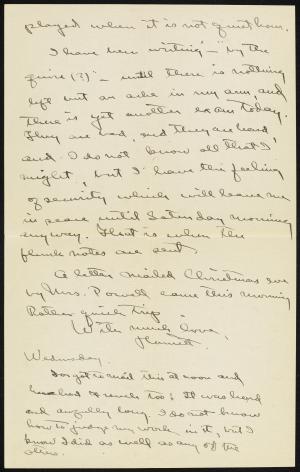 played when it is not quiet hour.
I have been writing - "by the
quire (?)" - until there is nothing
left but an ache in my arm, and
there is yet another exam today.
They are bad, and they are hard,
and I do not know all that I
might, but I have this feeling
of security which will leave me
in peace until Saturday morning
anyway. That is when the
flunk notes are sent.
A letter mailed Christmas eve
by Mrs. Powell came this morning
Rather quick trip
With much love,
Wednesday.
Forgot to mail this at noon and
too! It was hard
and awfully long. I do not know
how to judge my work in it, but I
know I did as well as any of the